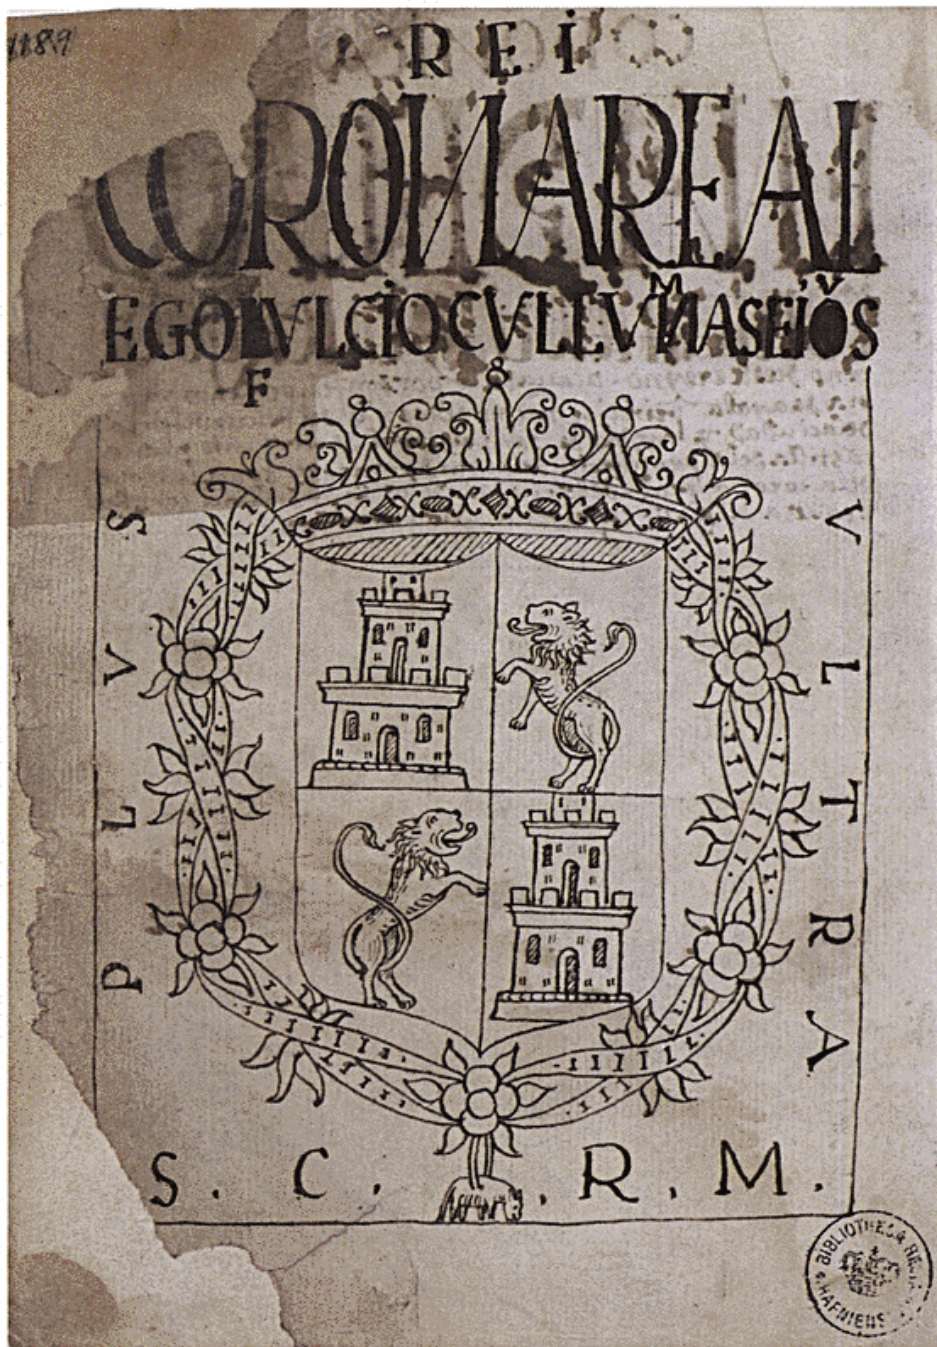 1189
REI
CORONAREAL
EGOFVLCIOCVLLVMNASEIVS
PLVS
VLTRA
S. C. R. M.
BIBLIOTHECA REGIA HAFNIENSIS